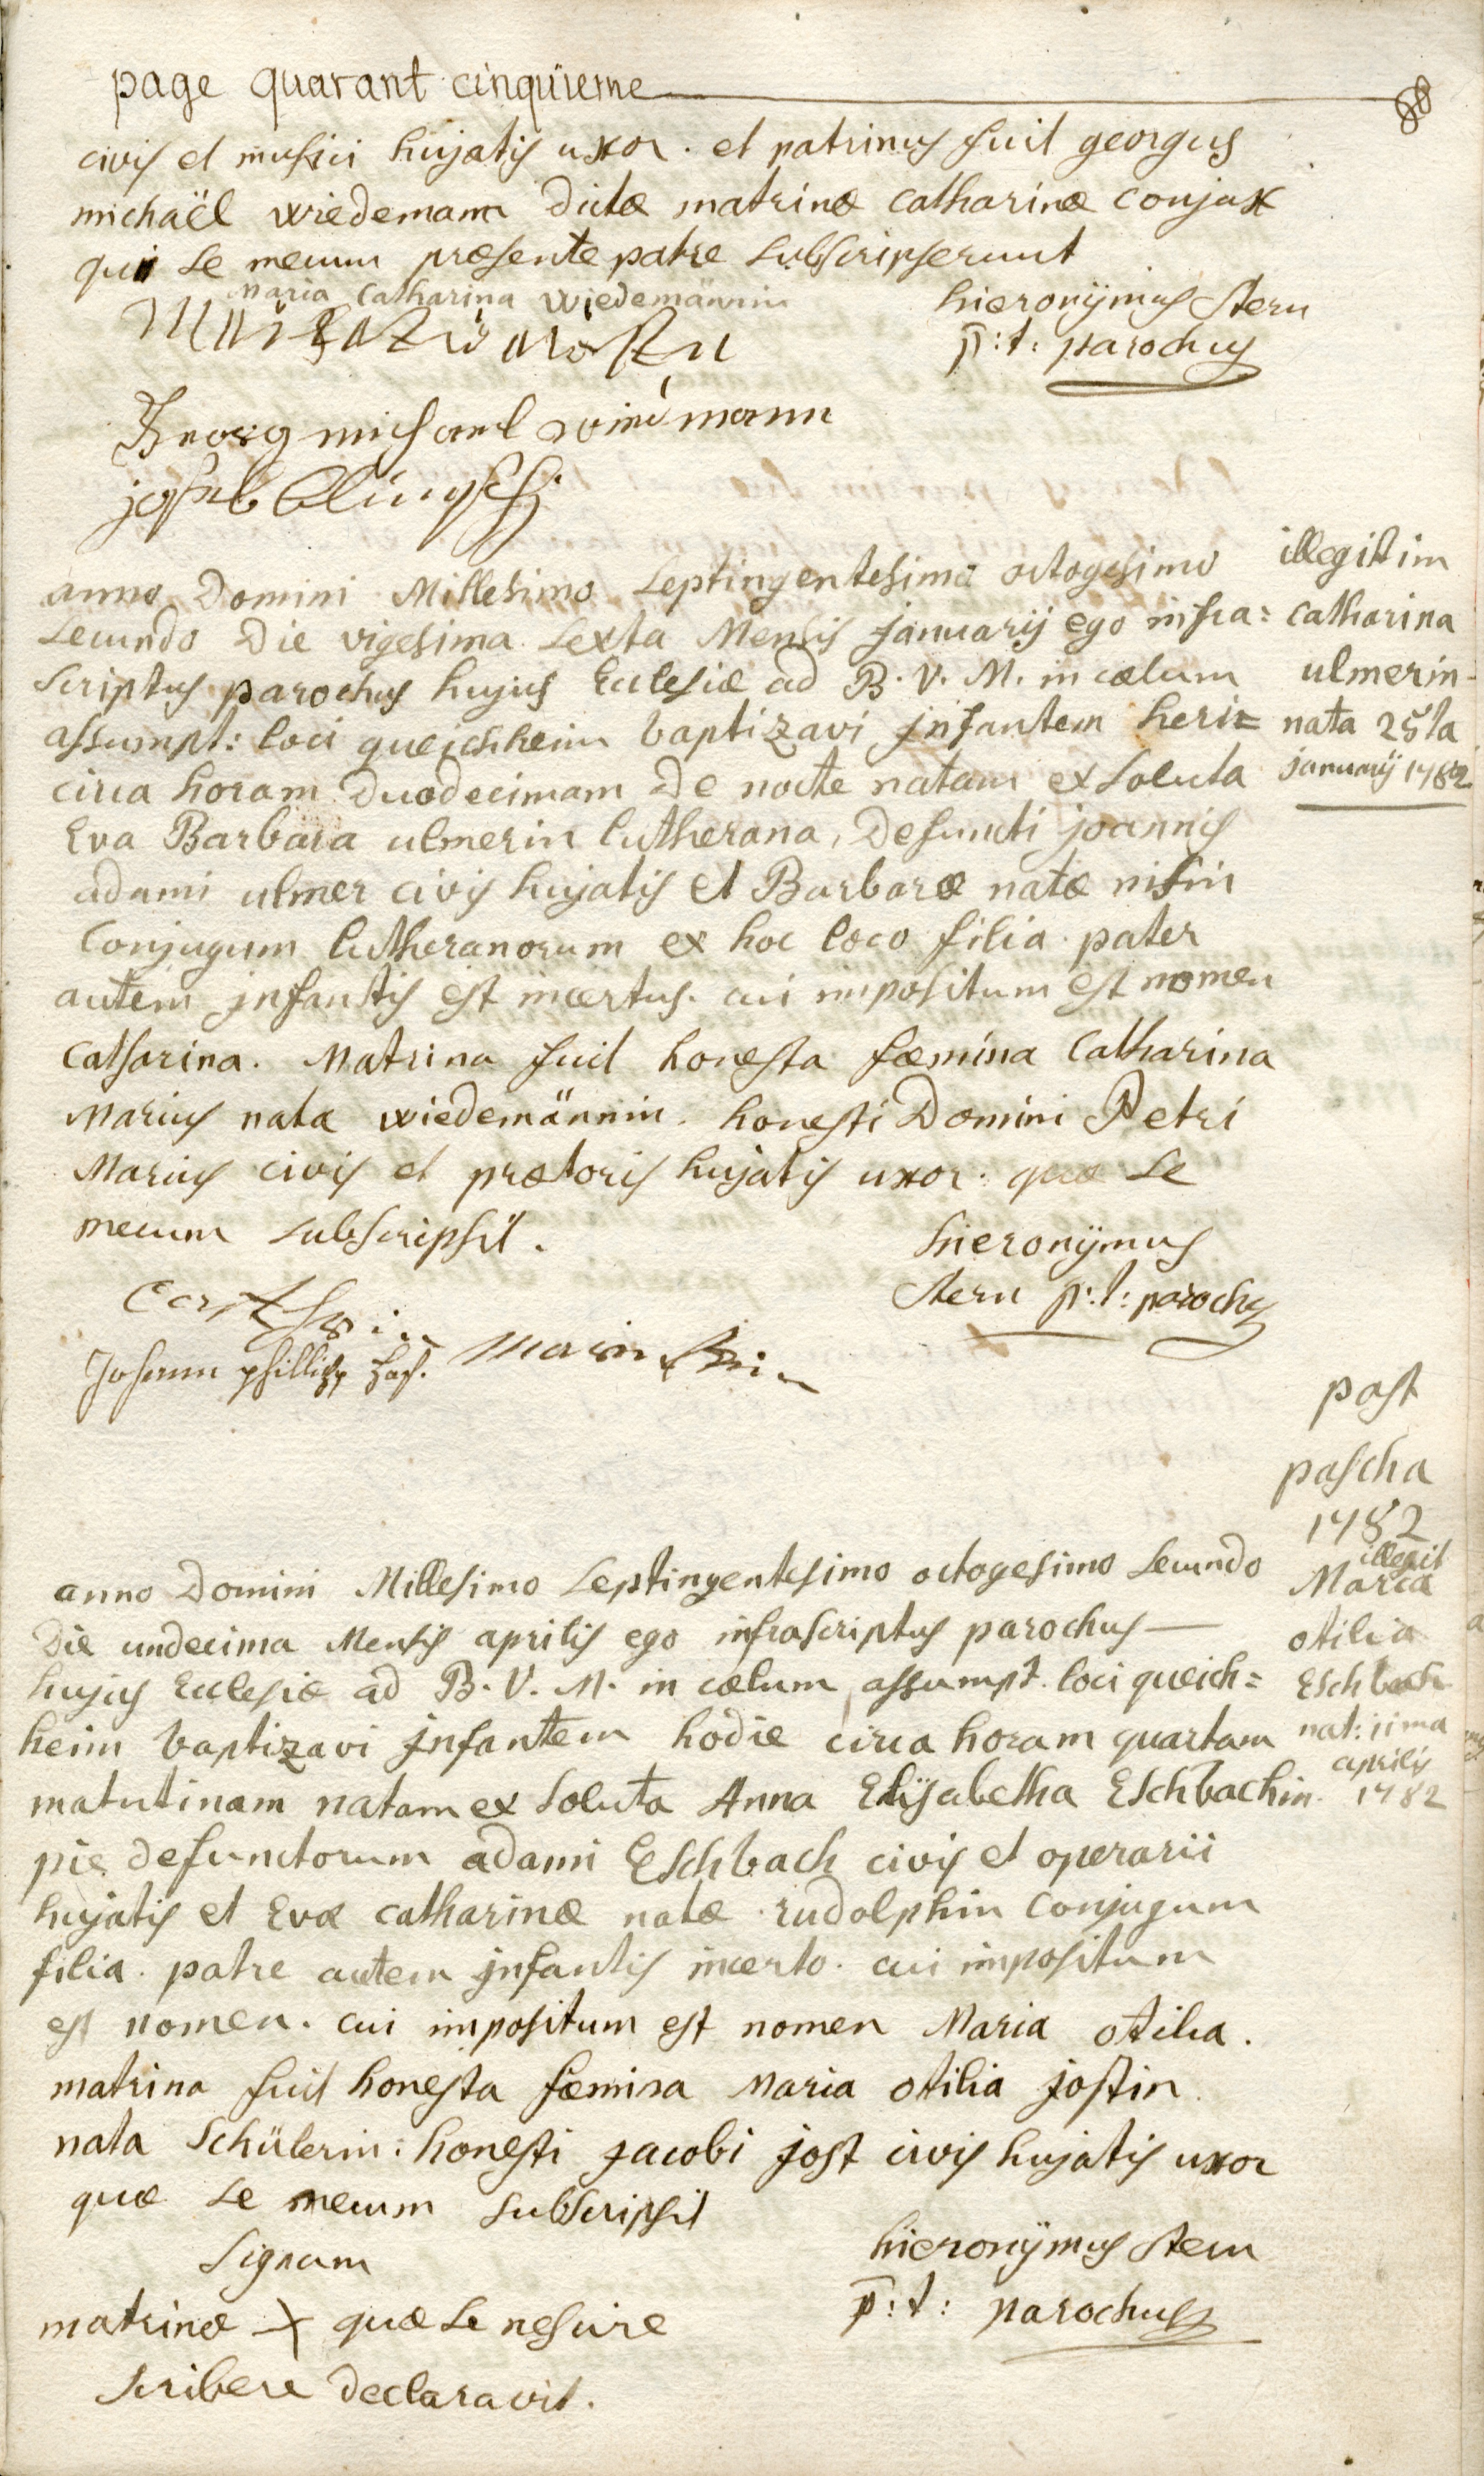 page quarant cinquieme
civis et musici hujatis uxor. et patrinus fuit georgus
michaël wiedemann dictæ matrinæ catharinæ conjux
qui se mecum præsente patre subscripserunt
Maria Catharina wiedemännin
hieronÿmus Stern
p: t: parochus
Georg michael widmann
anno Domini Millesimo septingentesimo octogesimo
secundo Die vigesima sexta Mensis januarij ego infra=
scriptus parochus hujus Ecclesiæ ad B. V. M. in cœlum
assumpt: loci queichheim baptizavi jnfantem heri=
circa horam Duodecimam De nocte natam ex soluta
Eva Barbara ulmerin lutherana, Defuncti joannis
adami ulmer civis hujatis et Barbaræ natæ nisin
Conjugum lutheranorum ex hoc loco filia. pater
autem jnfantis est incertus. cui impositum est nomen
catharina. Matrina fuit honesta fœmina Catharina
Marius nata wiedemännin. honesti Domini Petri
Marius civis et prætoris hujatis uxor. quæ se
mecum subscripsit.
illegitim
catharina
ulmerin
nata 25ta
januarij 1782
hieronÿmus
Stern p: t: parochus
Johann phillipp
post
pascha
1782
anno Domini Millesimo septingentesimo octogesimo secundo
Die undecima Mensis aprilis ego infrascriptus parochus
hujus Ecclesiæ ad B. V. M. in cœlum assumpt. loci queich=
heim baptizavi jnfantem hodie circa horam quartam
matutinam natam ex soluta Anna Elisabetha Eschbachin.
pie defunctorum adami Eschbach civis et operarii
hujatis et Evæ catharinæ natæ rudolphin Conjugum
filia. patre autem jnfantis incerto. cui impositum
est nomen. cui impositum est nomen Maria otilia.
matrina fuit honesta fœmina Maria otilia jostin
nata Schülerin. honesti jacobi jost civis hujatis uxor
quæ se mecum subscripsit
illegit
Maria
otilia
Eschbach
nat: 11ma
aprilis
1782
signum
matrinæ + quæ se nescire
scribere declaravit.
hieronÿmus Stern
p: t: parochus